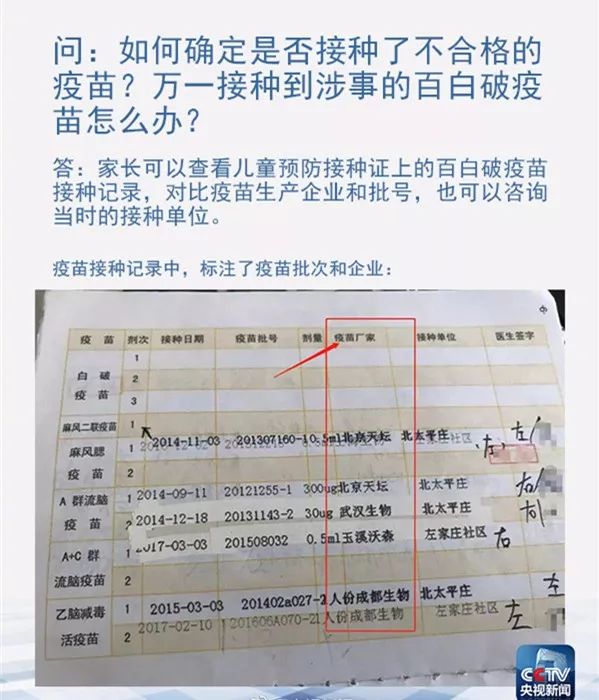 问：如何确定是否接种了不合格的
疫苗？万一接种到涉事的百白破疫
苗怎么办？
答：家长可以查看儿童预防接种证上的百白破疫苗
接种记录，对比疫苗生产企业和批号，也可以咨询
当时的接种单位。
疫苗接种记录中，标注了疫苗批次和企业：
疫苗 剂次 接种日期 疫苗批号 剂量 疫苗厂家 接种单位 医生签字
白破疫苗 1
2
3
麻风二联疫苗 1 2014-11-03 201307160-1 0.5ml 北京天坛 北太平庄 左
麻风腮疫苗 1 左家庄社区
2
A 群流脑疫苗 1 2014-09-11 20121255-1 300ug 北京天坛 北太平庄 右
2 2014-12-18 20131143-2 30ug 武汉生物 北太平庄 右
A+C 群流脑疫苗 1 2017-03-03 201508032 0.5ml 玉溪沃森 左家庄社区 右
2
乙脑减毒活疫苗 1 2015-03-03 201402a027-2 1人份 成都生物 北太平庄 左
2 2017-02-10 201606A070-2 1人份 成都生物 左家庄社区 左
CCTV
央视新闻